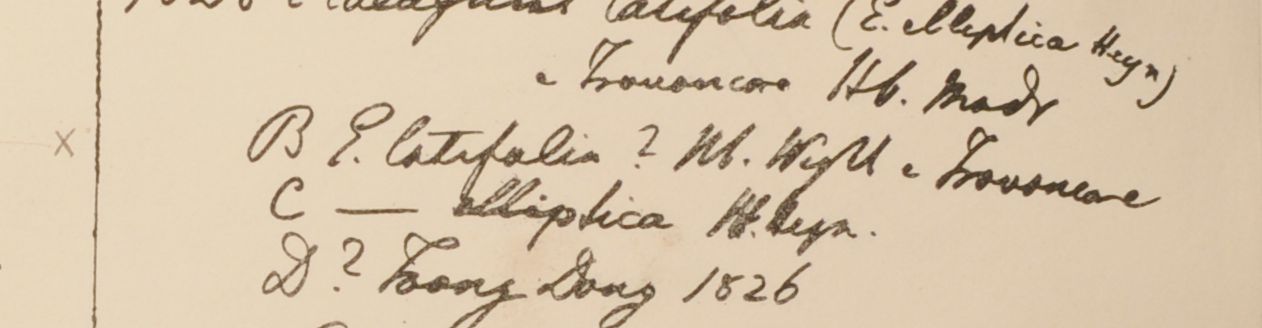 Elaeagnus latifolia (E. elliptica Heyn)
e Travancore Hb. Madr
B E. latifolia? Hb. Wight e Travancore
C — elliptica H. Heyn.
D? Toong Dong 1826